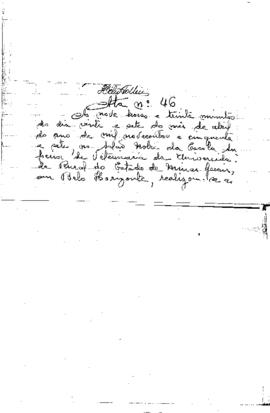 Ata nº 46
As nove horas e trinta minutos
do dia vinte e sete do mês de abril
do ano de mil novecentos e cinquenta
e sete, no salão nobre da Escola Su
perior de Veterinária da Universida-
de Rural do Estado de Minas Gerais,
em Belo Horizonte, realizou-se a